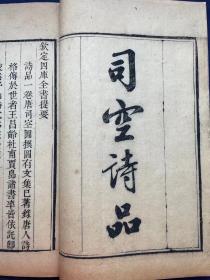 司空詩品
欽定四庫全書提要
詩品一卷唐司空圖撰圖有文集已著錄唐人詩
格傳於世者王昌齡杜甫賈島諸書率皆依託即